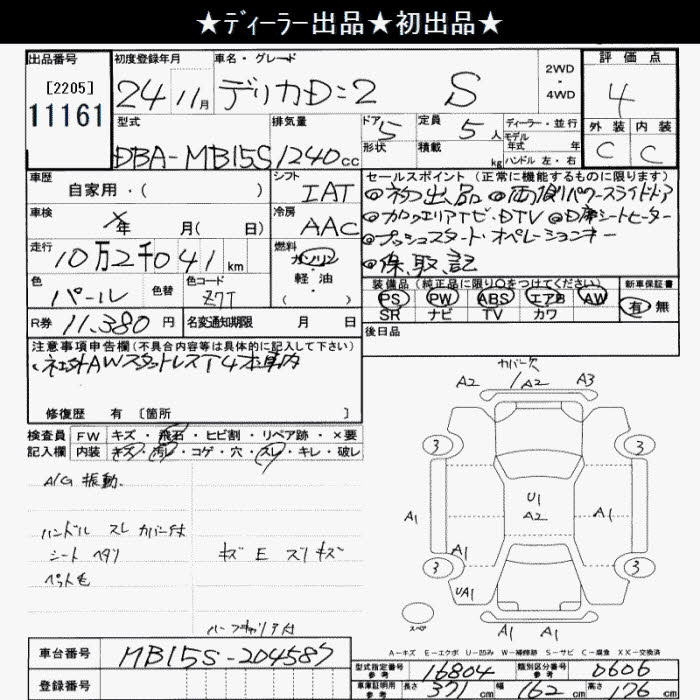 ★ディーラー出品★初出品★
出品番号 初度登録年月 車名・グレード 2WD・4WD 評価点
[2205]
11161 24 11月 デリカD:2 S 4
型式 排気量 ドア 5 定員 5人 ディーラー・並行 外装 内装
形状 積載 kg モデル年式 年 ハンドル 左・右 C C
DBA-MB15S 1240cc
車歴 シフト セールスポイント (正常に機能するものに限ります)
自家用・( ) IAT ◎初出品 ◎両側パワースライドドア
車検 年 月( 日) 冷房 AAC ◎カロッツェリアナビ・DTV ◎D席シートヒーター
走行 燃料 ◎プッシュスタート・オペレーションキー
10万2千041km ガソリン・軽油・( ) ◎保、取、記
色 色替 色コード 装備品 (純正品に限り○をつけてください) 新車保証書
パール Z7T PS PW ABS エアB AW 有・無
SR ナビ TV カワ
R券 11.380円 名変通知期限 月 日 後日品
注意事項申告欄(不具合内容等は具体的に記入して下さい)
・社外AWスタットレスT4本車内
修復歴 有 [箇所 ]
検査員 FW キズ・飛石・ヒビ割・リペア跡・×要
記入欄 内装 キズ・汚レ・コゲ・穴・スレ・キレ・破レ
A/G 振動
ハンドル スレ カバー付
シート ヘタリ キズ E ズリキズ
ペット毛
カバー欠
A2 A2 A3
3 3
U1
A2
A1 A1
A1
3 3
UA1
スペア
A1 A1
A-キズ E-エクボ U-凹み W-補修跡 S-サビ C-腐食 XX-交換済
車台番号 MB15S-204587
登録番号
型式指定番号 参考 16804 類別区分番号 参考 0606
車庫証明用 参考 長さ 371cm 幅 162cm 高さ 176cm